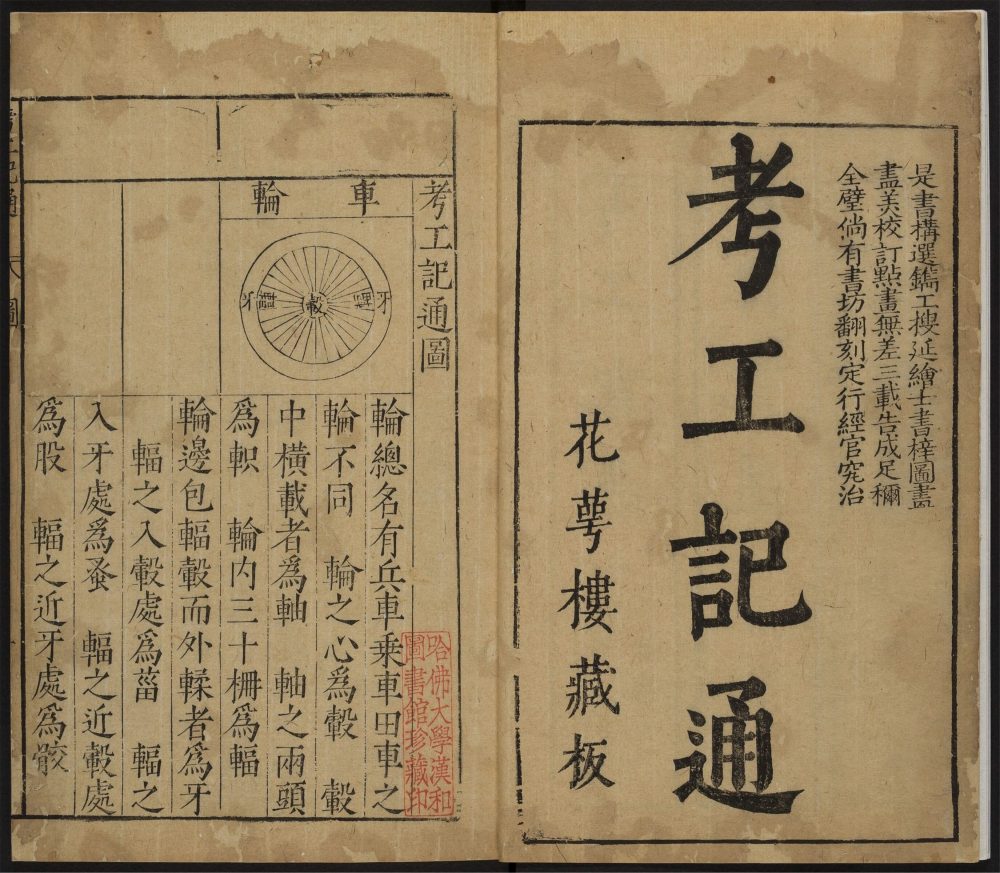 是書構選鐫工搜延繪士書梓圖畫
盡美校訂點畫無差三載告成足稱
全璧倘有書坊翻刻定行經官究治
考工記通
花萼樓藏板
考工記通圖
車輪
牙
輻
轂
輻
牙
輪總名有兵車乗車田車之
輪不同 輪之心為轂 轂
中橫載者為軸 軸之兩頭
為軹 輪内三十柵為輻
輪邊包輻轂而外輮者為牙
輻之入轂處為菑 輻之
入牙處為蚤 輻之近轂處
為股 輻之近牙處為骹
哈佛大學漢和
圖書館珍藏印